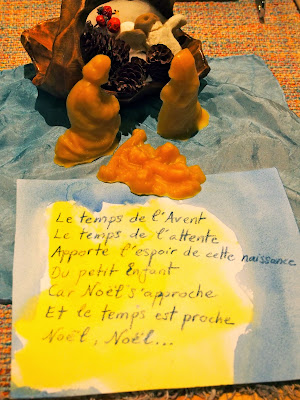 Le temps de l'Avent
Le temps de l'attente
Apporte l'espoir de cette naissance
Du petit Enfant
Car Noël s'approche
Et le temps est proche
Noël, Noël...